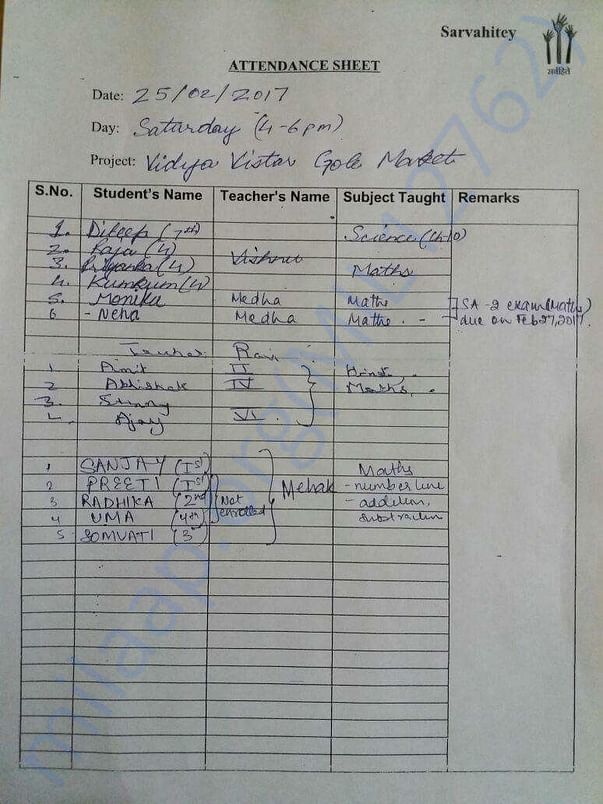 Sarvahitey
सर्वहिते
ATTENDANCE SHEET
Date: 25/02/2017
Day: Saturday (4-6pm)
Project: Vidya Vistar Gole Market
S.No. Student's Name Teacher's Name Subject Taught Remarks
1. Dileep (7th) Science (Ch 10)
2. Raja (4)
3. Priyanka (4) Vishnu Maths
4. Kumkum (4)
5. Monika Medha Maths SA-2 exam (Maths)
6 - Neha Medha Maths - due on Feb 27, 2017.
Teacher Ravi
1 Amit II Hindi
2 Abhishek IV Maths
3. Sunny
4. Ajay VI
1 SANJAY (Ist) Maths
2 PREETI (Ist) Mehak - number line
3 RADHIKA (2nd) Not - addition,
4 UMA (4th) enrolled subtraction
5 SOMVATI (3
milaap.org(MIL127762)